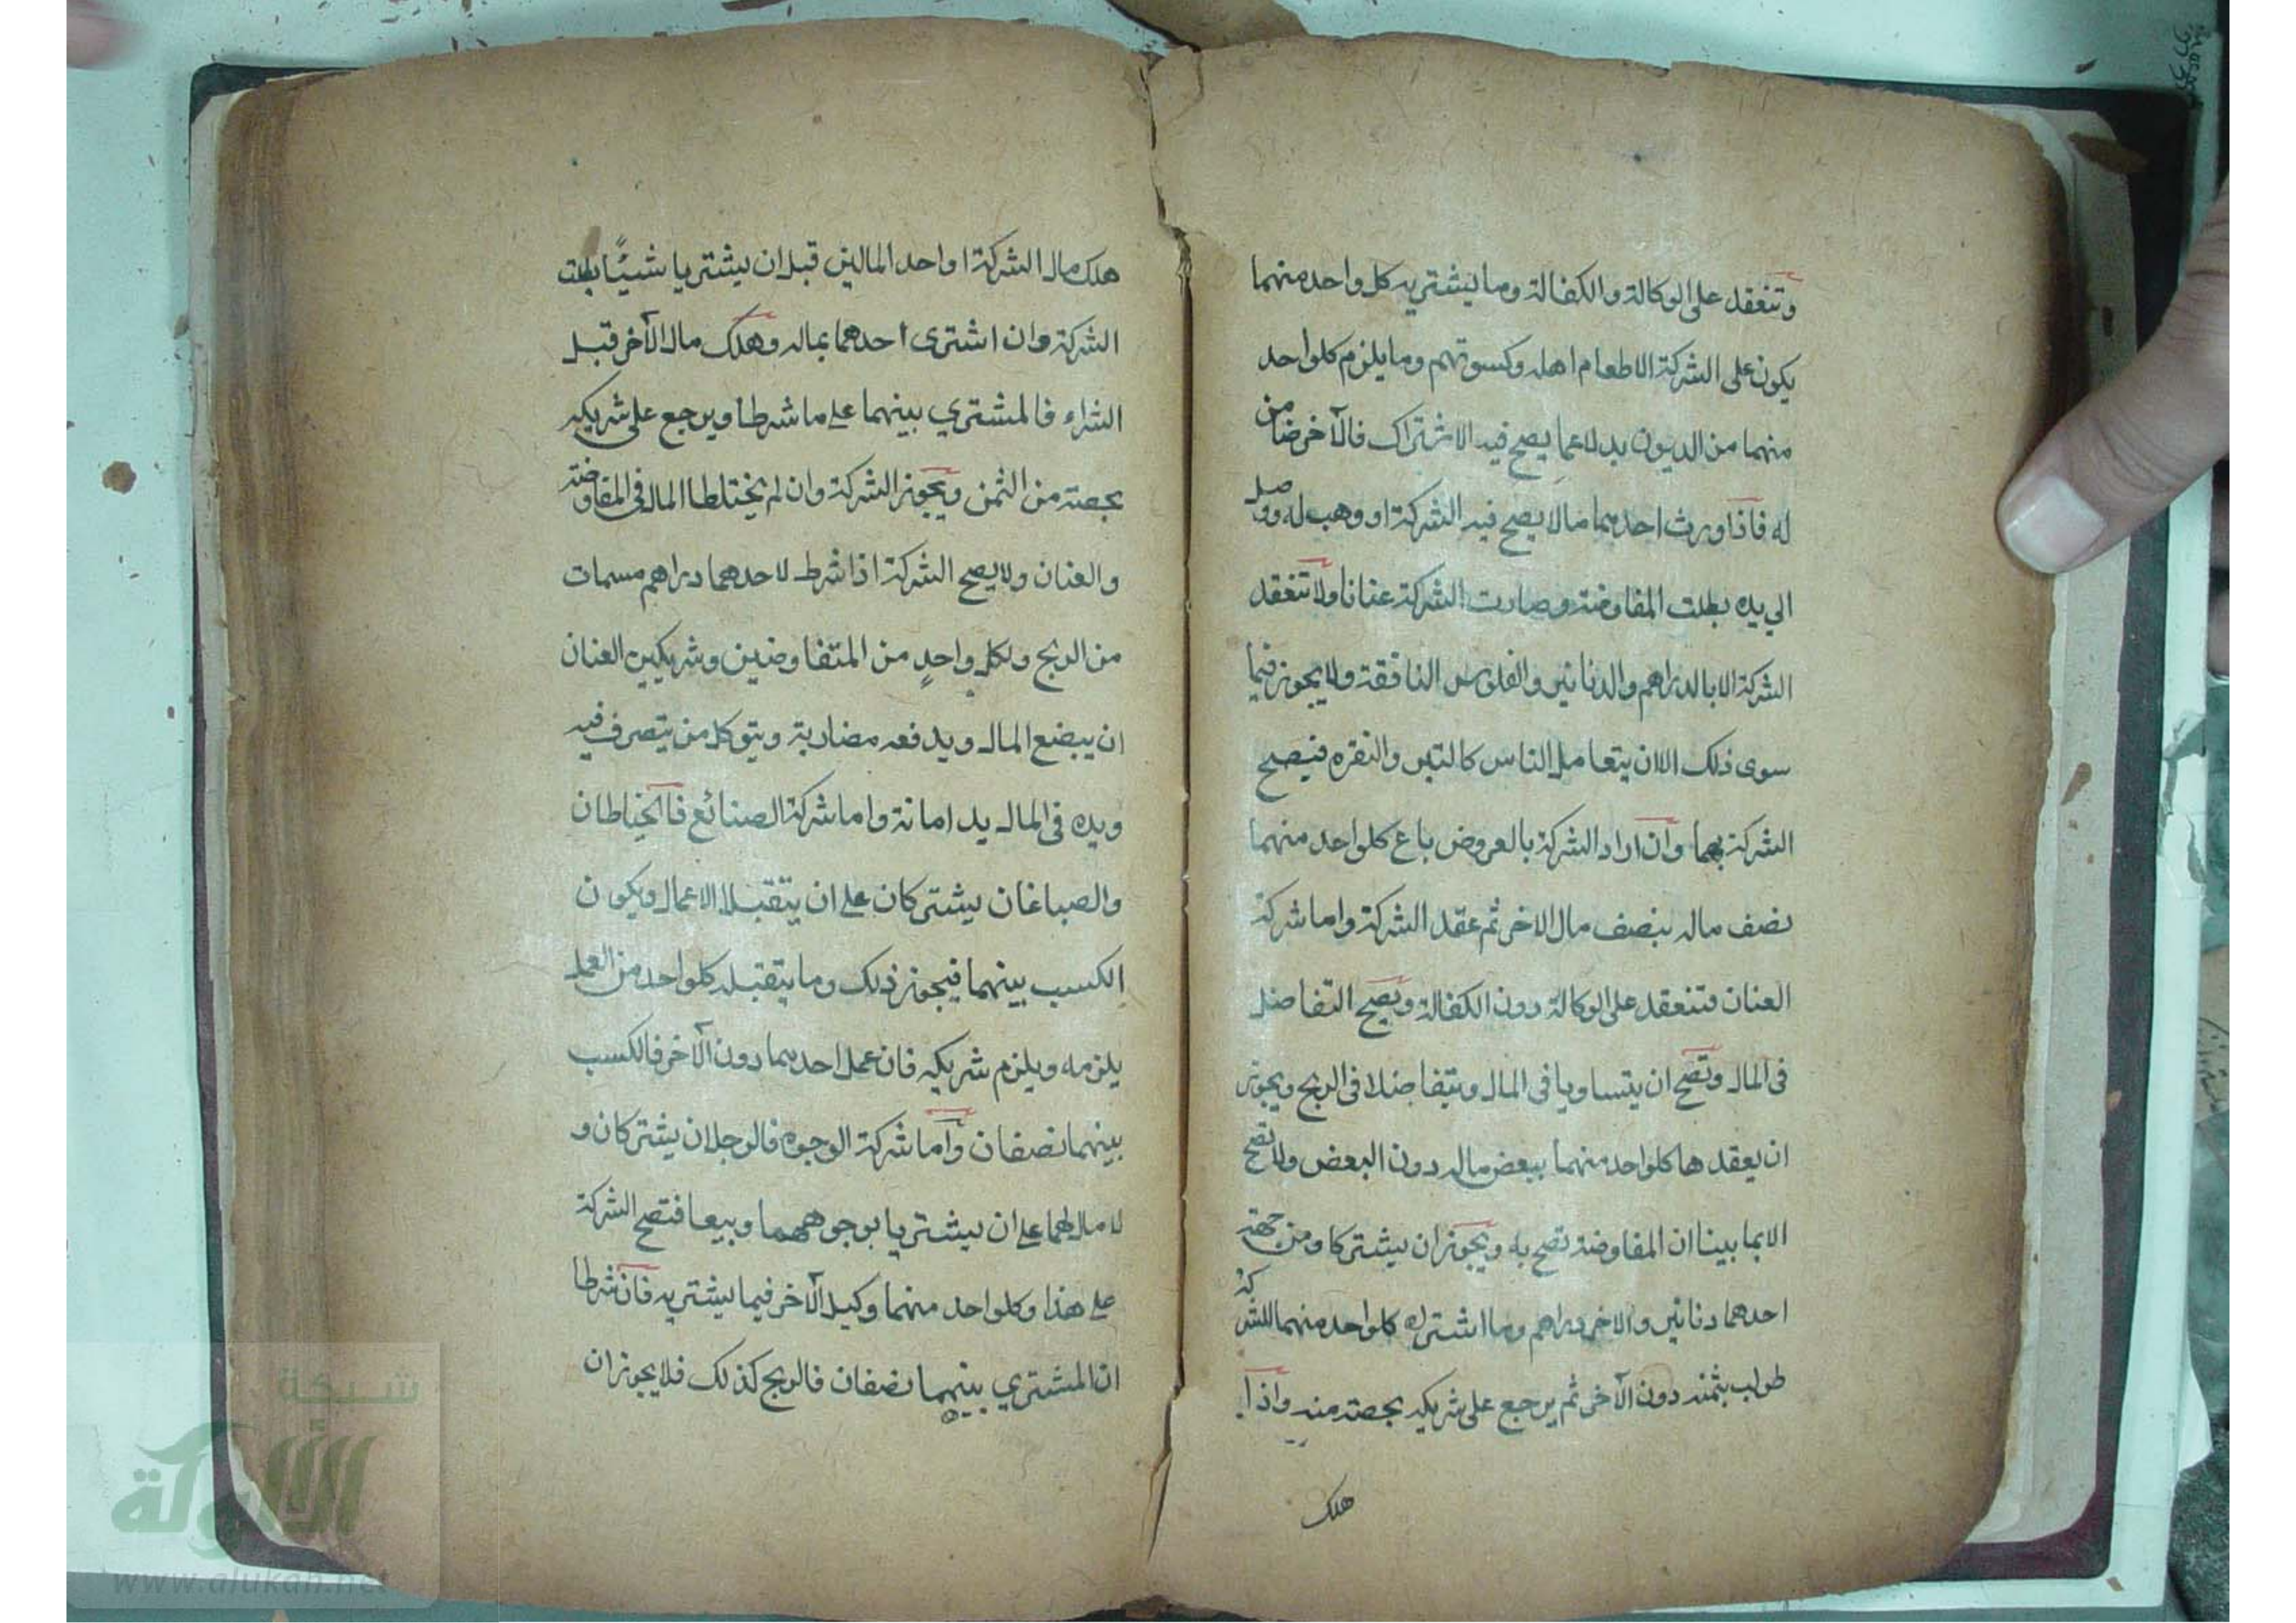 وتنعقد على الوكالة والكفالة وما يشتريه كل واحد منهما
يكون على الشركة الا طعام اهله وكسوتهم وما يلزم كلواحد
منهما من الديون بدلا عما يصح فيه الاشتراك فالآخر ضامن
له فاذا ورث احدهما مالا يصح فيه الشركة او وهب له ووصل
الي يده بطلت المفاوضة وصارت الشركة عنانا ولا تنعقد
الشركة الا بالدراهم والدنانير والفلوس النافقة ولا يجوز فيما
سوى ذلك الا ان يتعامل الناس كالتبر والنقره فيصح
الشركة بهما وان اراد الشركة بالعروض باع كلواحد منهما
نصف ماله بنصف مال الاخر ثم عقد الشركة واما شركة
العنان فتنعقد على الوكالة دون الكفالة ويصح التفاضل
فى المال وتصح ان يتساويا فى المال ويتفاضلا فى الربح ويجوز
ان يعقدها كلواحد منهما ببعض ماله دون البعض ولا تصح
الا بما بينا ان المفاوضة تصح به ويجوز ان يشتركا ومن جهة
احدهما دنانير والاخر دراهم وما اشتراه كلواحد منهما للشركة
طولب بثمنه دون الآخر ثم يرجع على شريكه بحصته منه واذا
هلك
هلك مال الشركة او احد المالين قبل ان يشتريا شيئًا بطلت
الشركة وان اشترى احدهما بماله وهلك مال الآخر قبل
الشراء فالمشتري بينهما على ما شرطا ويرجع على شريكه
بحصته من الثمن ويجوز الشركة وان لم يختلطا المال فى المفاوضة
والعنان ولا يصح الشركة اذا شرط لاحدهما دراهم مسمات
من الربح ولكل واحدٍ من المتفاوضين وشريكين العنان
ان يبضع المال ويدفعه مضاربة ويتوكل من يتصرف فيه
ويده فى المال يد امانة واما شركة الصنائع فالخياطان
والصباغان يشتركان على ان يتقبلا الاعمال ويكون
الكسب بينهما فيجوز ذلك وما يتقبله كلواحد من العمل
يلزمه ويلزم شريكه فان عمل احدهما دون الآخر فالكسب
بينهما نصفان وأما شركة الوجوه فالرجلان يشتركان و
لا مال لهما على ان يشتريا بوجوههما وبيعا فتصح الشركة
على هذا وكلواحد منهما وكيل الآخر فيما يشتريه فان شرطا
ان المشتري بينهما نصفان فالربح كذلك فلا يجوز ان
شبكة
الألوكة
www.alukah.net